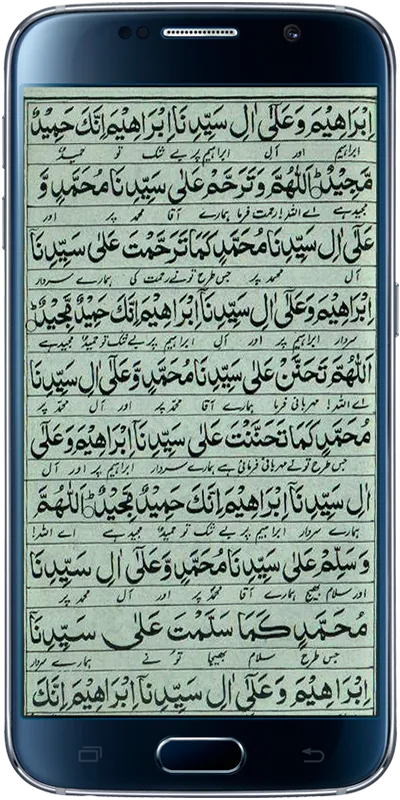 اِبْرَاهِيْمَ وَعَلٰٓى اٰلِ سَيِّدِنَآ اِبْرَاهِيْمَ اِنَّكَ حَمِيْدٌ
ابراہیم اور آل ابراہیم پر بے شک تو حمیدؐ
مَّجِيْدٌ ؕ اَللّٰهُمَّ وَتَرَحَّمْ عَلٰى سَيِّدِنَا مُحَمَّدٍ وَّ
مجید ہے اے اللہ! رحمت فرما ہمارے آقا محمد پر اور
عَلٰٓى اٰلِ سَيِّدِنَا مُحَمَّدٍ كَمَا تَرَحَّمْتَ عَلٰى سَيِّدِنَآ
آل محمد پر جس طرح تونے رحمت کی ہمارے سردار
اِبْرَاهِيْمَ وَعَلٰٓى اٰلِ سَيِّدِنَآ اِبْرَاهِيْمَ اِنَّكَ حَمِيْدٌ مَّجِيْدٌ ؕ
سردار ابراہیم پر اور آل ابراہیم پر بے شک تو حمید مجید ہے
اَللّٰهُمَّ تَحَنَّنْ عَلٰى سَيِّدِنَا مُحَمَّدٍ وَّعَلٰٓى اٰلِ سَيِّدِنَا
اے اللہ! مہربانی فرما ہمارے آقا محمد پر اور آل محمد پر
مُحَمَّدٍ كَمَا تَحَنَّنْتَ عَلٰى سَيِّدِنَآ اِبْرَاهِيْمَ وَعَلٰٓى
جس طرح تونے مہربانی فرمائی ہے ہمارے سردار ابراہیم پر اور آل
اٰلِ سَيِّدِنَآ اِبْرَاهِيْمَ اِنَّكَ حَمِيْدٌ مَّجِيْدٌ ؕ اَللّٰهُمَّ
ہمارے سردار ابراہیم پر بے شک تو حمید مجید ہے اے اللہ!
وَسَلِّمْ عَلٰى سَيِّدِنَا مُحَمَّدٍ وَّعَلٰٓى اٰلِ سَيِّدِنَا
اور سلام بھیج ہمارے آقا محمد پر اور آل محمد پر
مُحَمَّدٍ كَمَا سَلَّمْتَ عَلٰى سَيِّدِنَآ
جس طرح سلام بھیجا تو نے ہمارے سردار
اِبْرَاهِيْمَ وَعَلٰٓى اٰلِ سَيِّدِنَآ اِبْرَاهِيْمَ اِنَّكَ